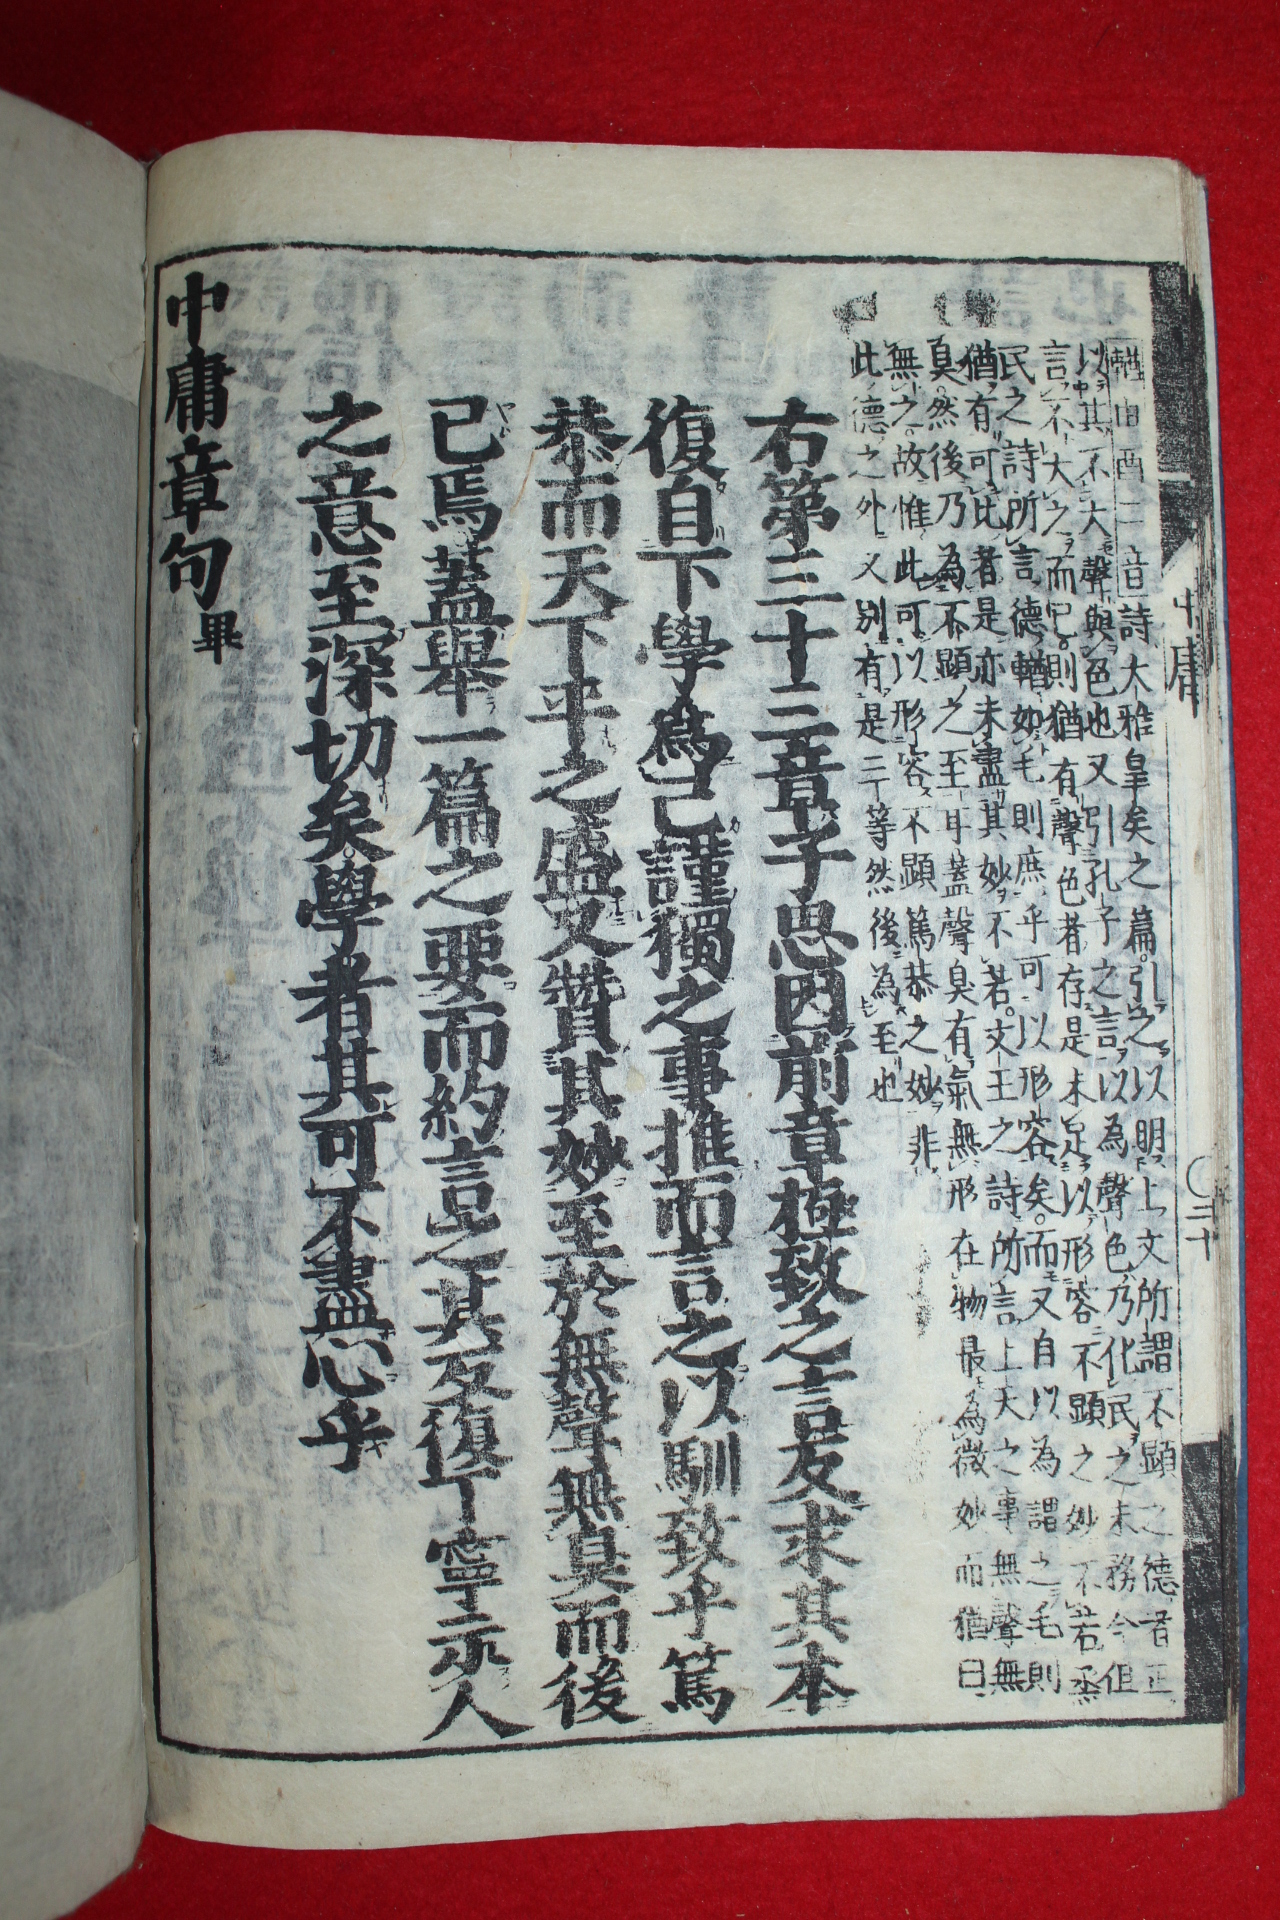 中庸
三十
輶由酉二音詩大雅皇矣之篇引之以明上文所謂不顯之德者正
以其不大聲與色也又引孔子之言以為聲色乃化民之末務今但
言不大之而已則猶有聲色者存是未足以形容不顯之妙不若烝
民之詩所言德輶如毛則庶乎可以形容矣而又自以為謂之毛則
猶有可比者是亦未盡其妙不若文王之詩所言上天之事無聲無
臭然後乃為不顯之至耳蓋聲臭有氣無形在物最為微妙而猶曰
無之故惟此可以形容不顯篤恭之妙非
此德之外又別有是三等然後為至也
右第三十三章子思因前章極致之言反求其本
復自下學爲己謹獨之事推而言之以馴致乎篤
恭而天下平之盛又贊其妙至於無聲無臭而後
已焉蓋舉一篇之要而約言之其反復丁寧示人
之意至深切矣學者其可不盡心乎
中庸章句畢